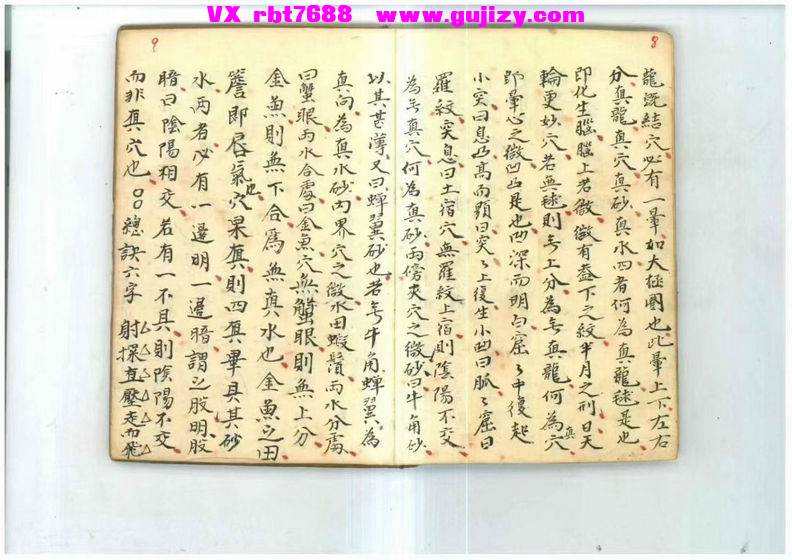 VX rbt7688 www.gujizy.com
8
龍既結穴必有一暈如大極圖也此暈上下左右
分真龍真穴真砂真水四者何為真龍毬是也
即化生腦腦上者微微有蓋下之紋半月之形曰天
輪更妙穴若無毬則無上分為无真龍何為真穴
即暈心之微凹凸是也凹深而明曰窟窟中復起
小突曰息凸高而顯曰突突上復生小凹曰脈窟曰
羅紋突息曰土宿穴無羅紋土宿則陰陽不交
為无真穴何為真砂兩傍夾穴之微砂曰牛角砂
9
以其甚薄又曰蟬翼砂也若无牛角蟬翼為
真何為真水砂內界穴之微水曰蝦鬚兩水分處
曰蟹眼兩水合處曰金魚穴無蟹眼則無上分
金魚則無下合為無真水也金魚之田
簷即唇氣也穴果真則四真畢具其砂
水两者必有一邊明一邊暗謂之股明股
暗曰陰陽相交若有一不具則陰陽不交
而非真穴也 總訣六字 射探直壓走而飛